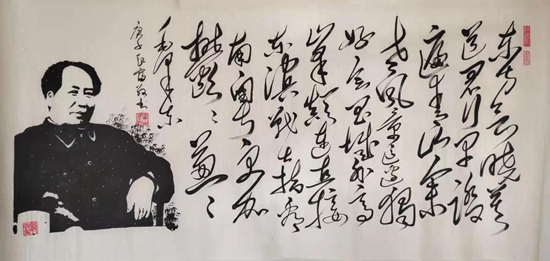 东方欲晓莫
道君行早踏
遍青山人未
老风景这边独
好会昌城外高
峰颠连直接
东溟战士指看
南粤更加
郁〻葱〻
毛泽东
庚子
书